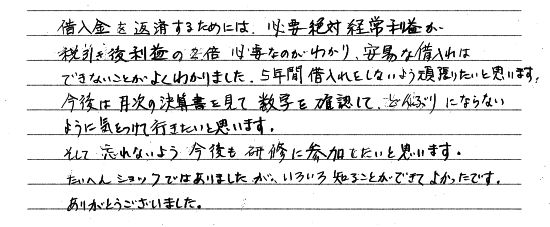 借入金を返済するためには、必要絶対経常利益が
税引き後利益の2倍必要なのがわかり、安易な借入れは
できないことがよくわかりました。5年間借入れをしないよう頑張りたいと思います。
今後は月次の決算書を見て数字を確認して、どんぶりにならない
ように気をつけて行きたいと思います。
そして忘れないよう今後も研修に参加でたいと思います。
たいへんショックではありましたが、いろいろ知ることができてよかったです。
ありがとうございました。